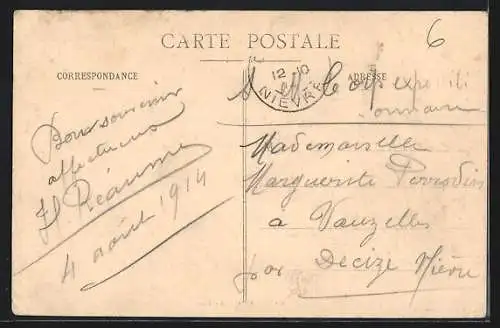 CARTE POSTALE
CORRESPONDANCE
ADRESSE
6
12-10
NIEVRE
Bon souvenir
affectueux
H Réaume
4 août 1914
Mademoiselle
Marguerite
à Vauzelles
par Decize Nièvre